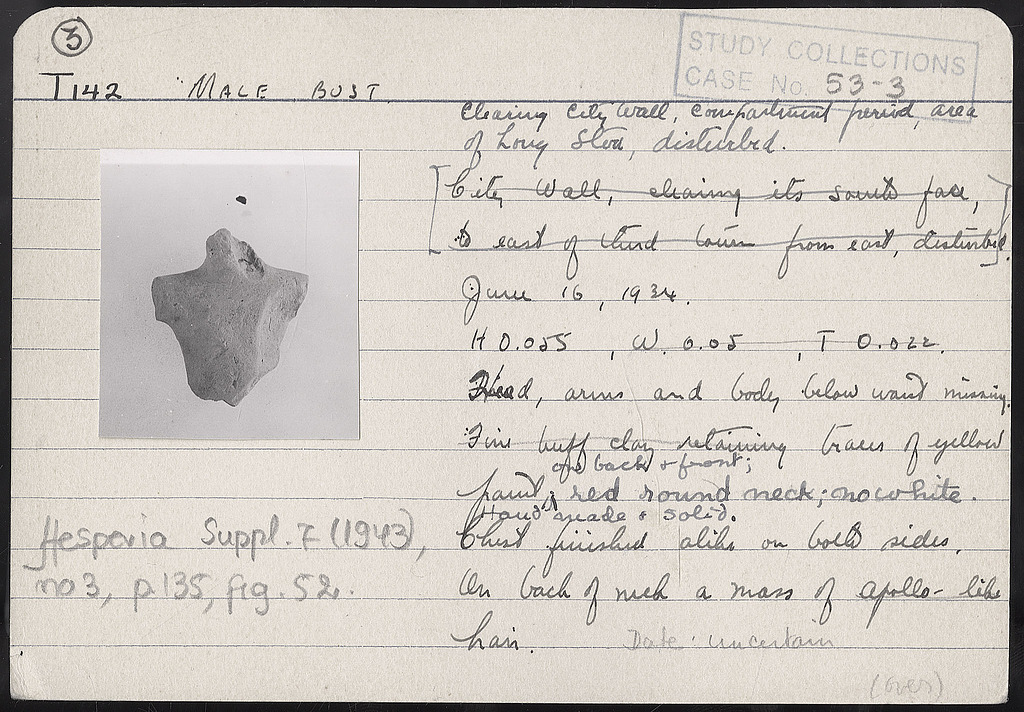 3
STUDY COLLECTIONS
CASE No. 53-3
T142 MALE BUST
Clearing City Wall, compartment period, area
of Long Stoa, disturbed.
[City Wall, clearing its south face,
to east of third tower from east, disturbed.]
June 16, 1934.
H 0.055, W. 0.05, T 0.022.
Head, arms and body below waist missing.
Fine buff clay retaining traces of yellow
on back & front;
paint, red round neck; no white.
Hand made & solid.
Chest finished alike on both sides.
On back of neck a mass of Apollo-like
hair. Date: uncertain
Hesperia Suppl. 7 (1943),
no 3, p. 135, fig. 52.
(over)